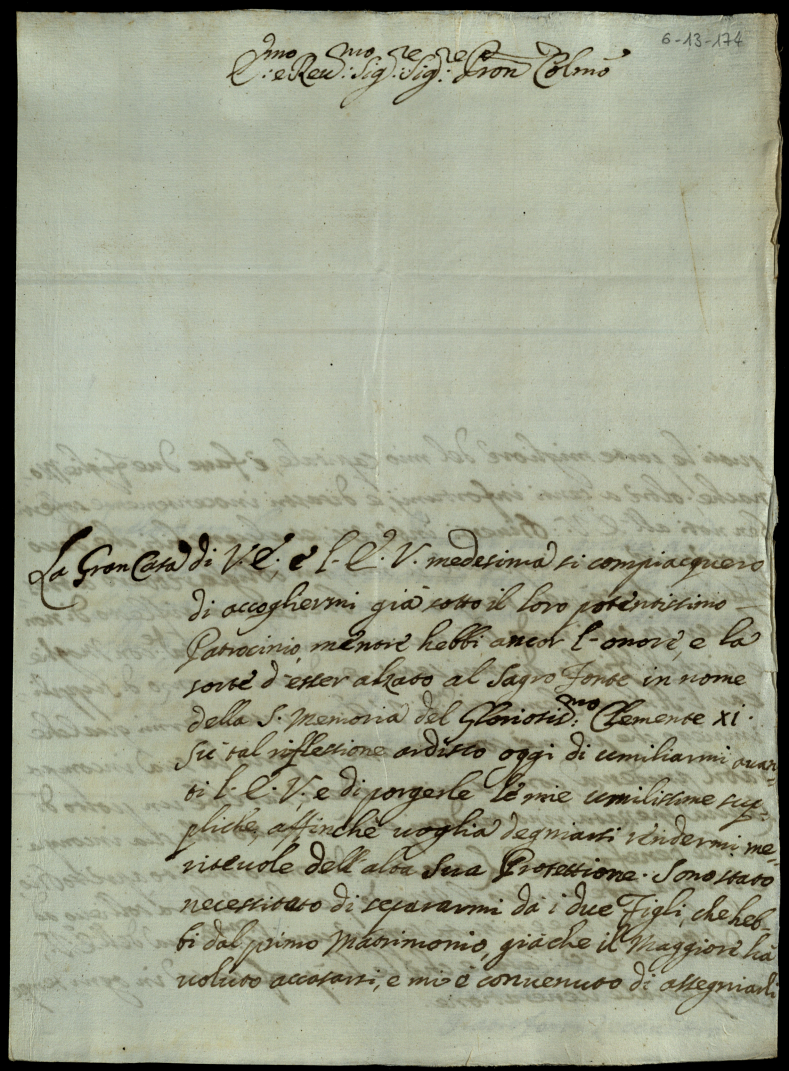 6-13-174
E.mo e Rev.mo Sig.re Sig.re Pron Colmo
La Gran Casa di V. E., e l'E. V. medesima si compiacquero
di accogliermi già sotto il loro potentissimo
Patrocinio, mentre hebbi ancor l'onore, e la
sorte d'esser alzato al Sagro Fonte in nome
della S. Memoria del Gloriosis.mo Clemente XI.
Su tal riflessione ardisco oggi di umiliarmi avan=
ti l'E. V., e di porgerle le mie umilissime sup=
pliche, affinche voglia degniarsi rendermi me=
ritevole dell'alta Sua Protettione. Sono stato
necessitato di separarmi da i due Figli, che heb=
bi dal primo Matrimonio, giache il Maggiore hà
voluto accasarsi, e mi è convenuto di assegniarli